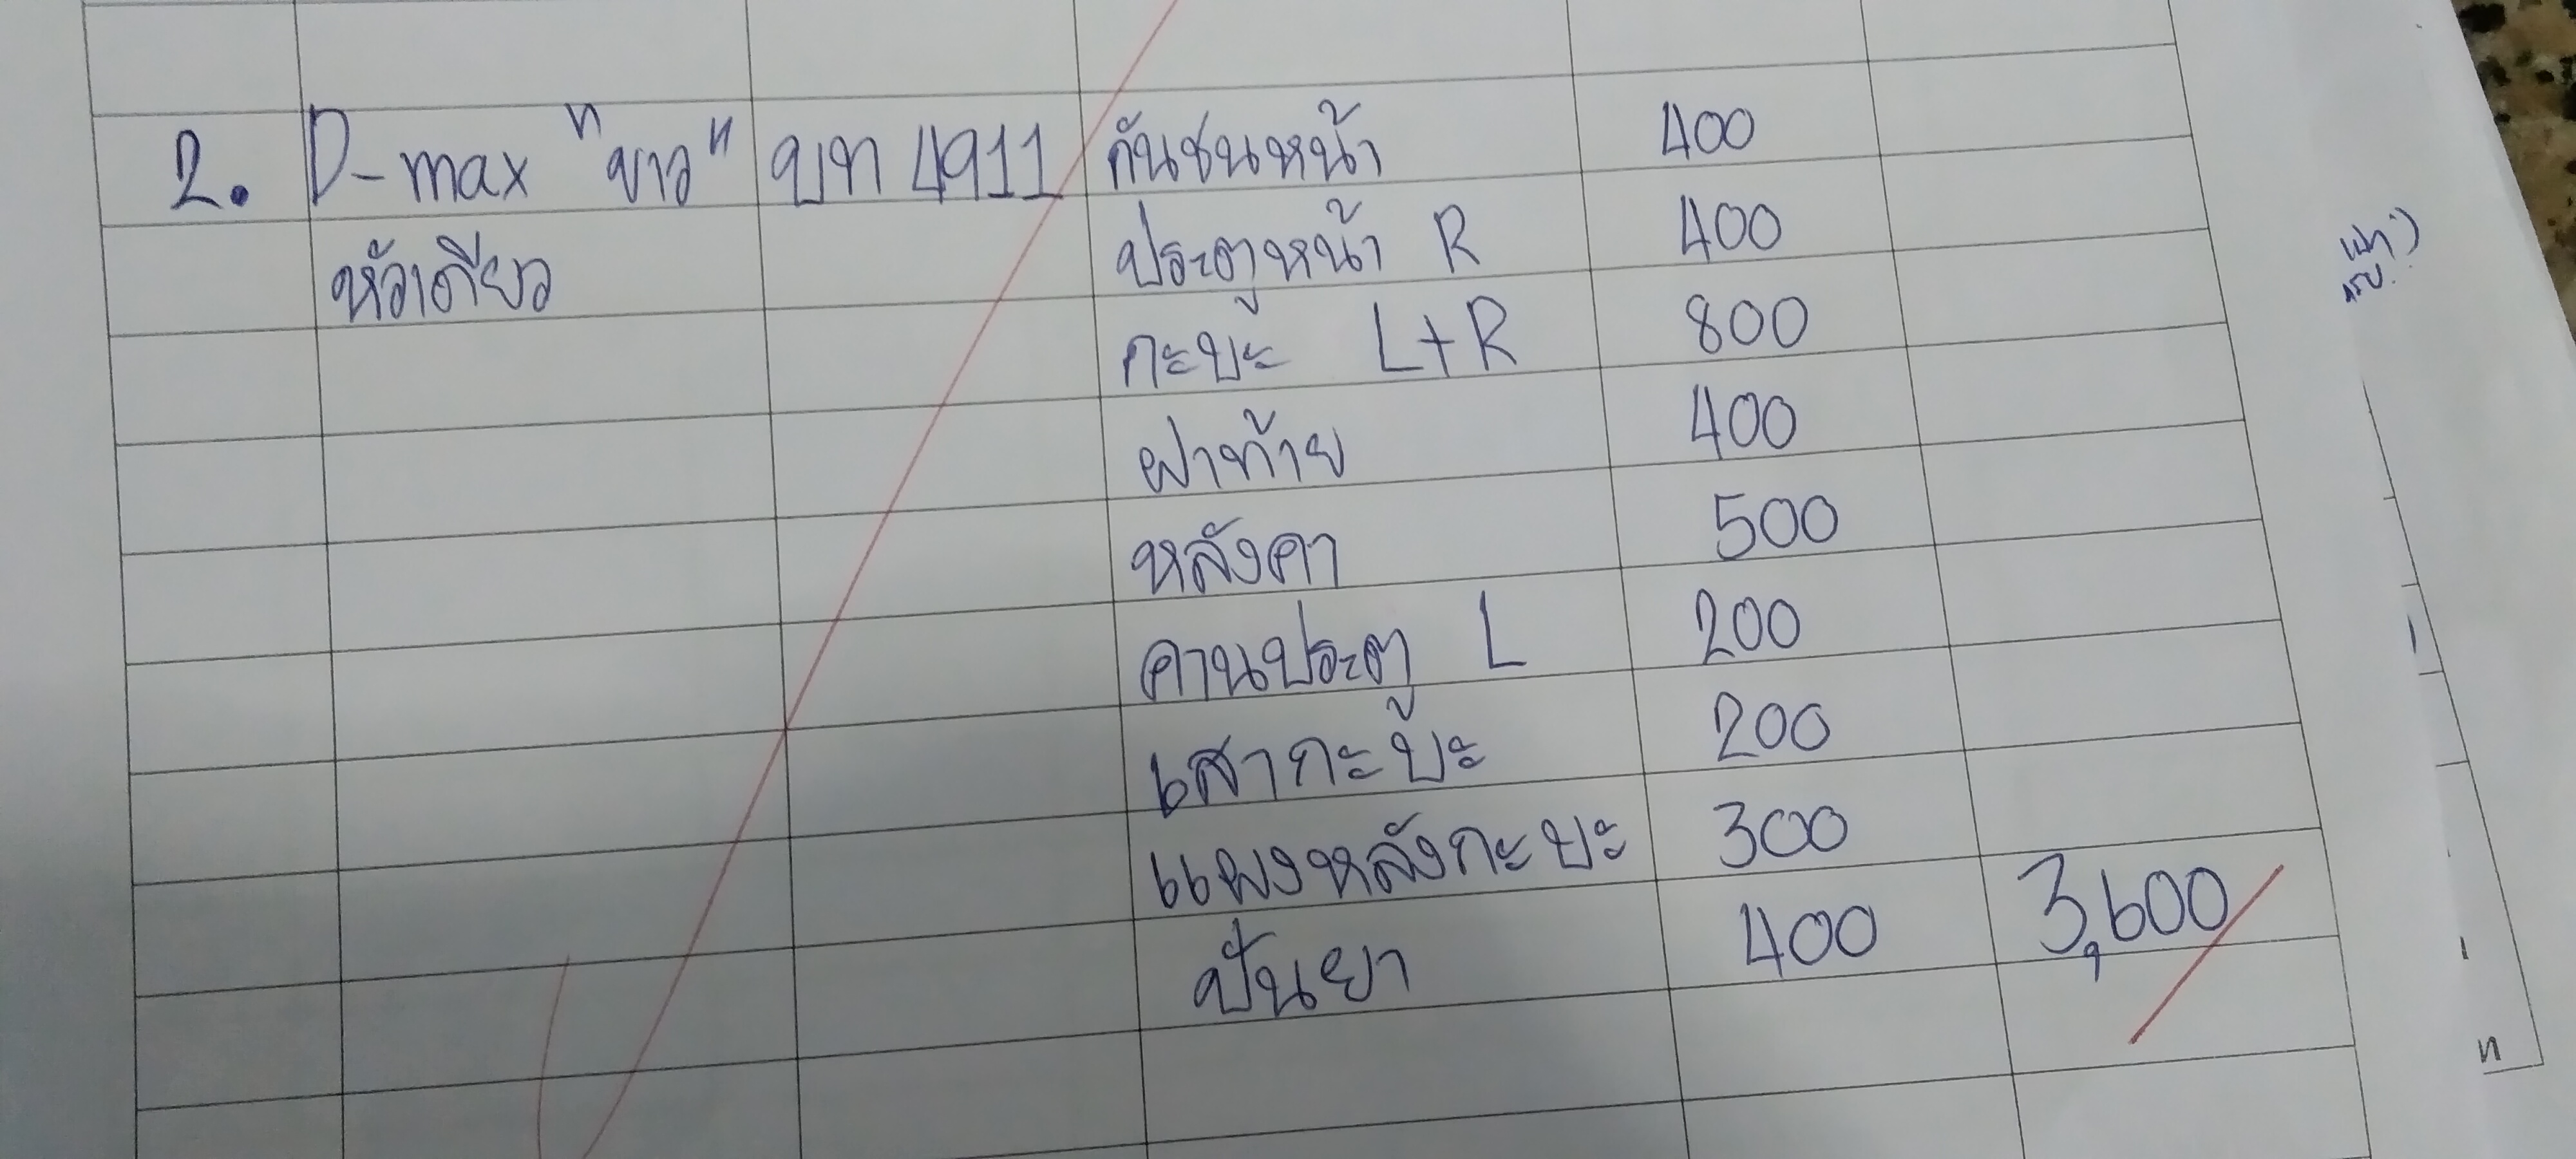 2. D-max "ขาว" บท 4911 กันชนหน้า 400
หัวเดียว ประตูหน้า R 400
กะบะ L+R 800
ฝาท้าย 400
หลังคา 500
คานประตู L 200
เสากะบะ 200
แผงหลังกะบะ 300
ปั่นยา 400 3,600